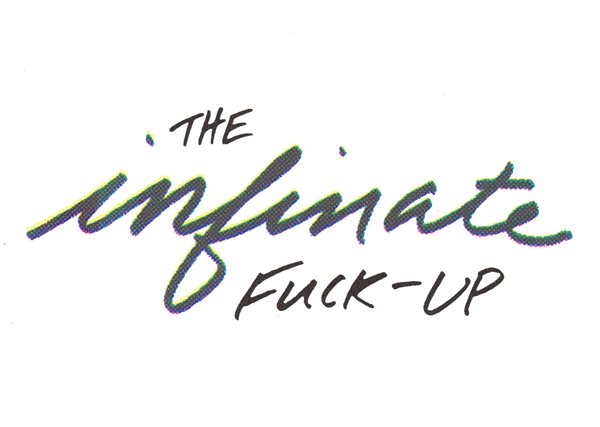 THE
infinate
FUCK-UP